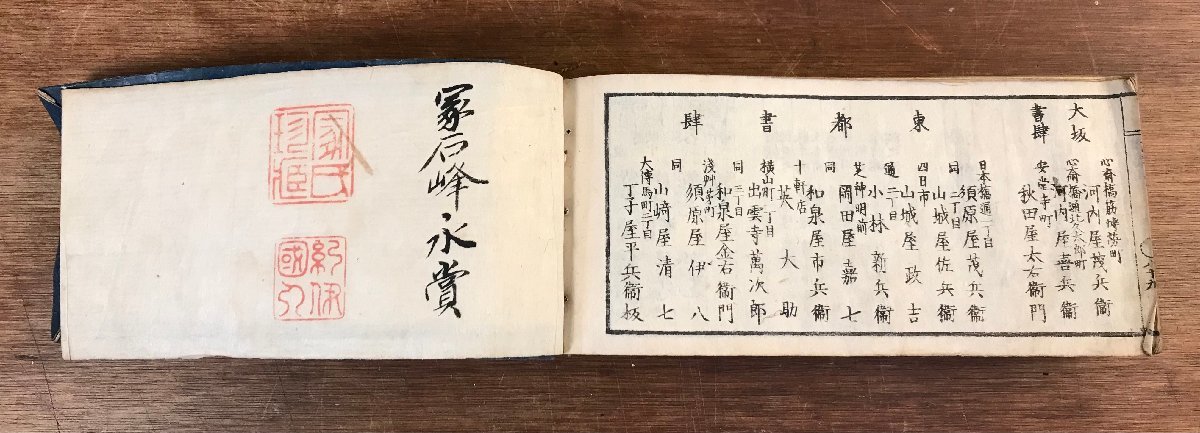 大坂
書肆
心斎橋筋博労町
河内屋茂兵衞
心斎橋通北久太郎町
河内屋喜兵衞
安堂寺町
秋田屋太右衞門
東都書肆
日本橋通一丁目
須原屋茂兵衞
同二丁目
山城屋佐兵衞
四日市
山城屋政吉
通二丁目
小林新兵衞
芝神明前
岡田屋嘉七
同
和泉屋市兵衞
十軒店
英大助
横山町一丁目
出雲寺萬次郎
同三丁目
和泉屋金右衞門
浅艸茅町
須原屋伊八
同
山﨑屋清七
大傳馬町二丁目
丁子屋平兵衞板
冢石峰永賞
冢氏
珍蔵
紀伊
國人